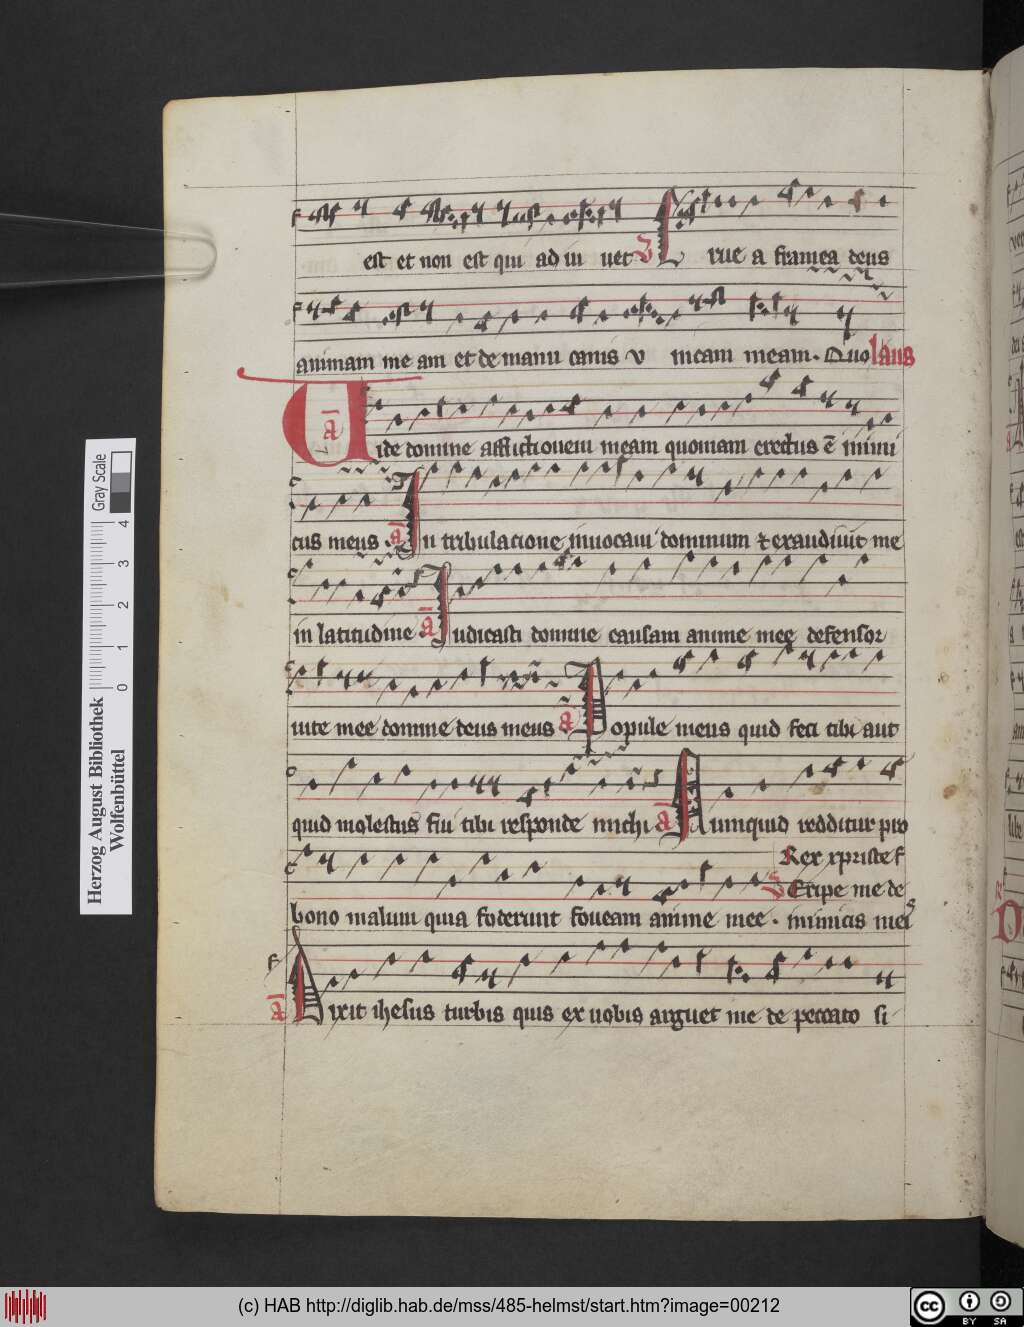 est et non est qui ad iu uet V Erue a framea deus
animam me am et de manu canis v nicam meam. Quo laus
a Vide domine afflictionem meam quoniam erectus ē inimi
cus meus. a In tribulacione inuocaui dominum et exaudiuit me
in latitudine. a Iudicasti domine causam anime mee defensor
uite mee domine deus meus a Popule meus quid feci tibi aut
quid molestus fui tibi responde michi a Numquid redditur pro
Rex xpriste f
V Eripe me de
bono malum quia foderunt foueam anime mee. inimicis meis
a Dixit ihesus turbis quis ex uobis arguet me de peccato si
Herzog August Bibliothek
Wolfenbüttel
0 1 2 3 4
Gray Scale
(c) HAB http://diglib.hab.de/mss/485-helmst/start.htm?image=00212
cc BY SA